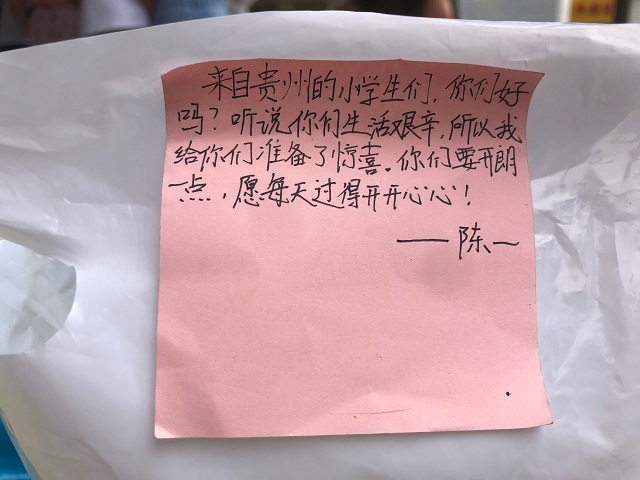 来自贵州的小学生们，你们好
吗？听说你们生活艰辛，所以我
给你们准备了惊喜。你们要开朗
一点，愿每天过得开开心心！
——陈一